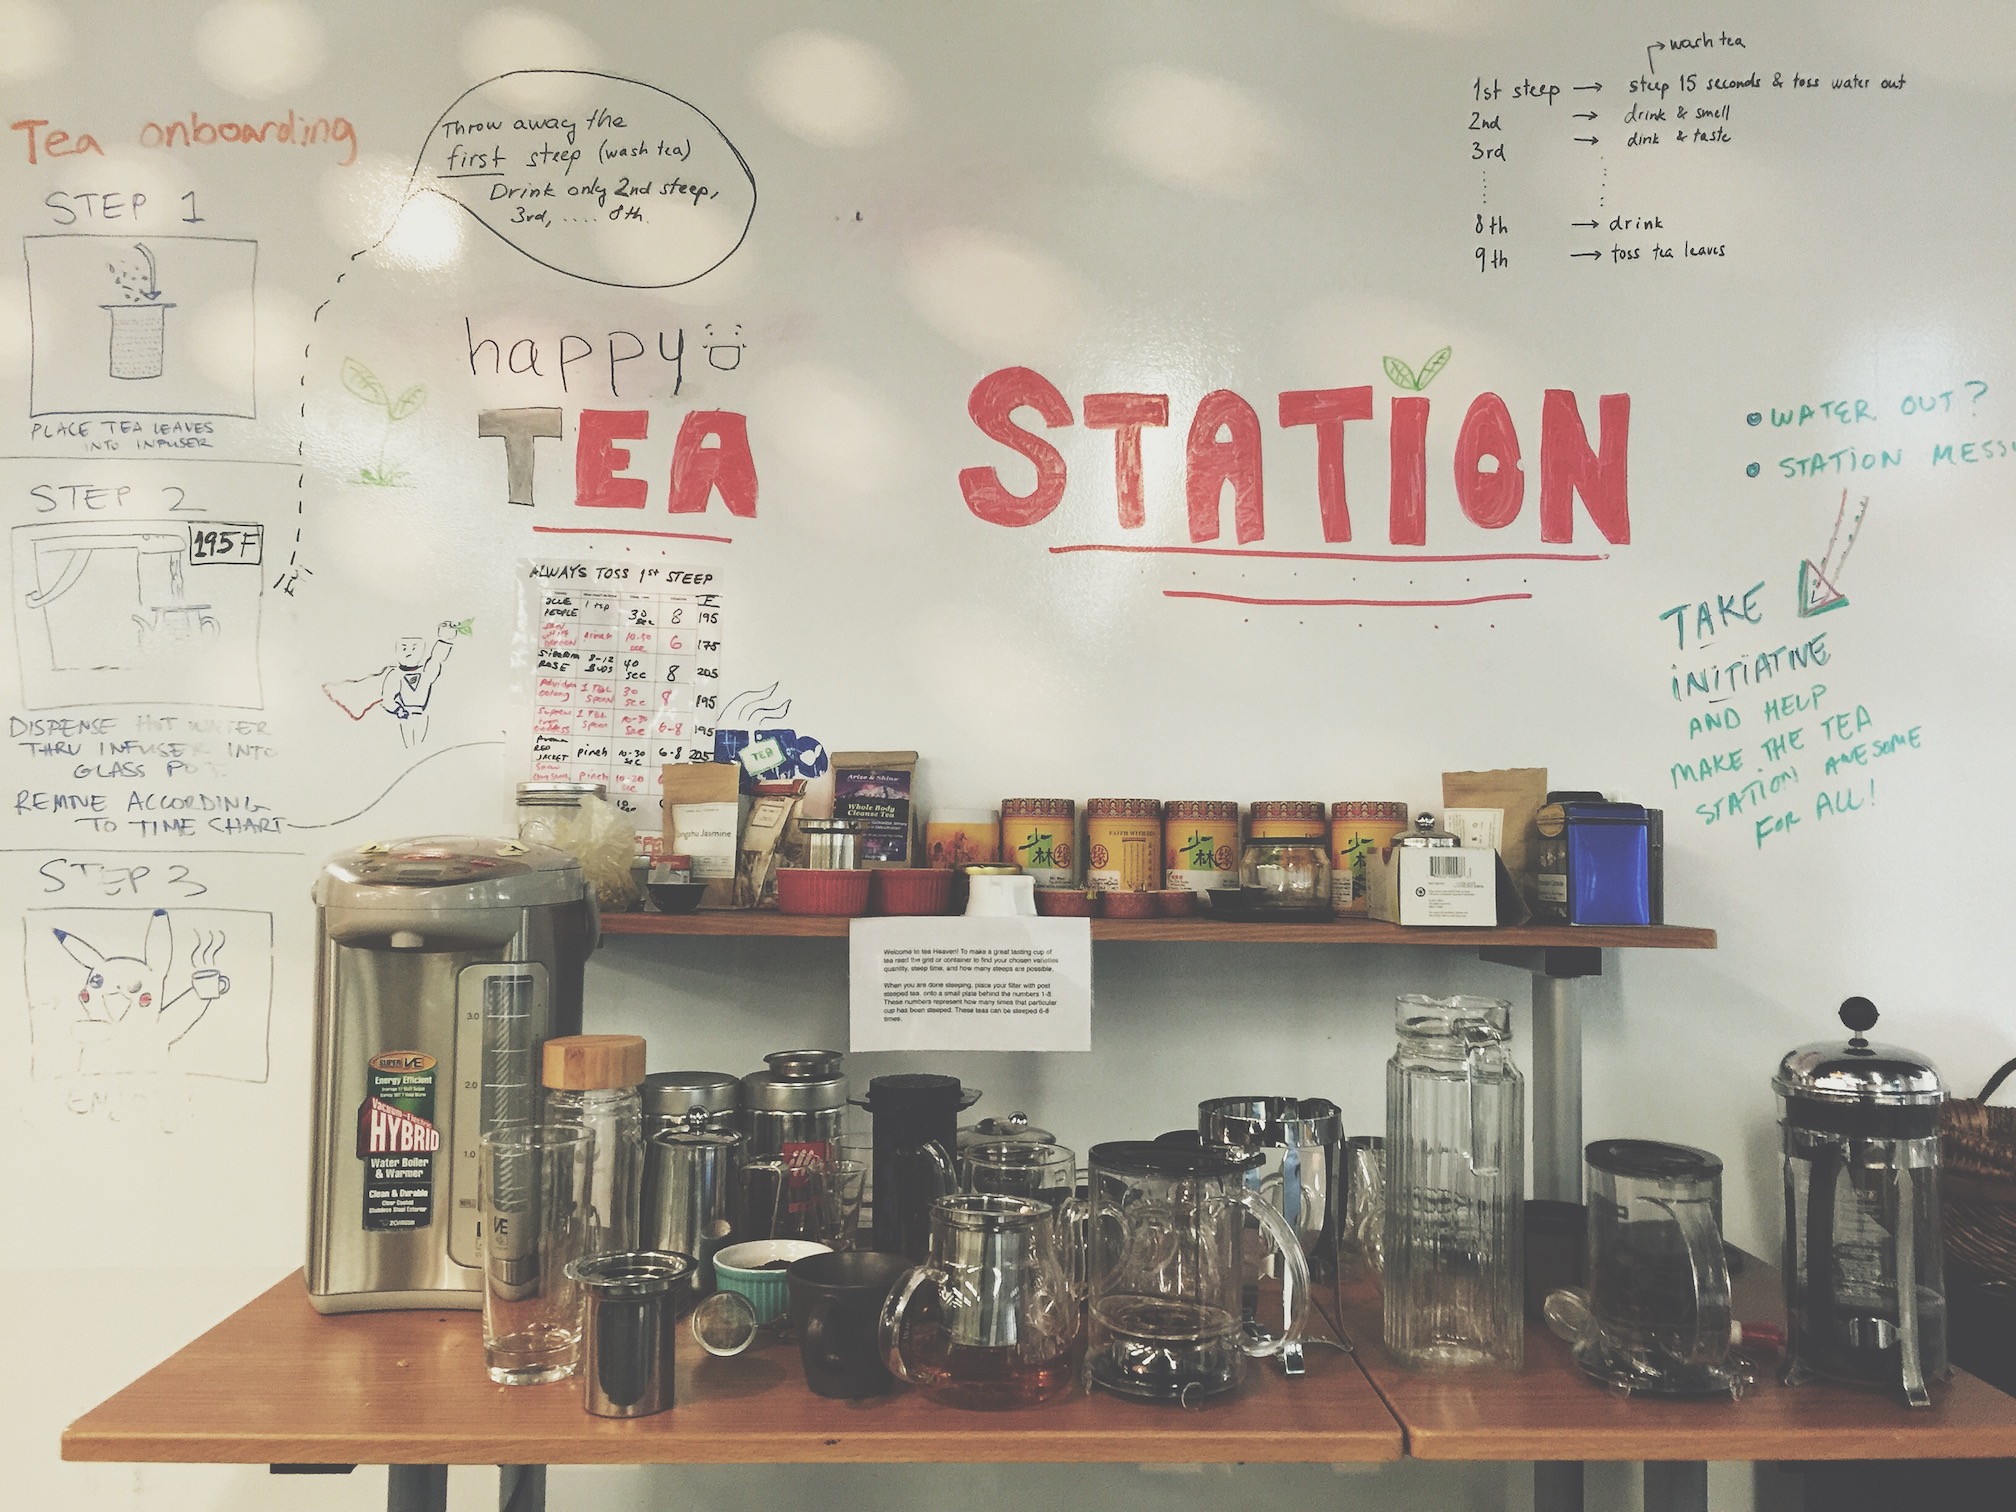 Tea onboarding
STEP 1
PLACE TEA LEAVES
INTO INFUSER
STEP 2
195F
DISPENSE HOT WATER
THRU INFUSER INTO
GLASS POT.
REMOVE ACCORDING
TO TIME CHART
STEP 3
Throw away the
first steep (wash tea)
Drink only 2nd steep,
3rd, .... 8th.
happy
TEA STATION
wash tea
1st steep → steep 15 seconds & toss water out
2nd → drink & smell
3rd → dink & taste
8th → drink
9th → toss tea leaves
• WATER OUT?
• STATION MESS
TAKE
INITIATIVE
AND HELP
MAKE THE TEA
STATION AWESOME
FOR ALL!
ALWAYS TOSS 1st STEEP
F
BLUE PEOPLE 1 tsp 30 sec 8 195
10-30 sec 6 175
ROSE 8-12 BUDS 40 sec 8 205
oolong 1 TBL SPOON 30 sec 8 195
Goddess 1 TBL SPOON 10-30 sec 6-8 195
RED JACKET pinch 10-30 sec 6-8 205
pinch 10-20 sec
TEA
Jasmine
Arise & Shine
Whole Body
Cleanse Tea
少林
緣
Welcome to tea Heaven! To make a great tasting cup of
tea read the grid or container to find your chosen varieties
quantity, steep time, and how many steeps are possible.
When you are done steeping, place your filter with post
steeped tea, onto a small plate behind the numbers 1-8
These numbers represent how many times that particular
cup has been steeped. These teas can be steeped 6-8
times.
3.0
2.0
1.0
SUPER VE
Energy Efficient
Vacuum-Electric
HYBRID
Water Boiler
& Warmer
Clean & Durable
Stainless Steel Exterior
ZOJIRUSHI
VE
illy